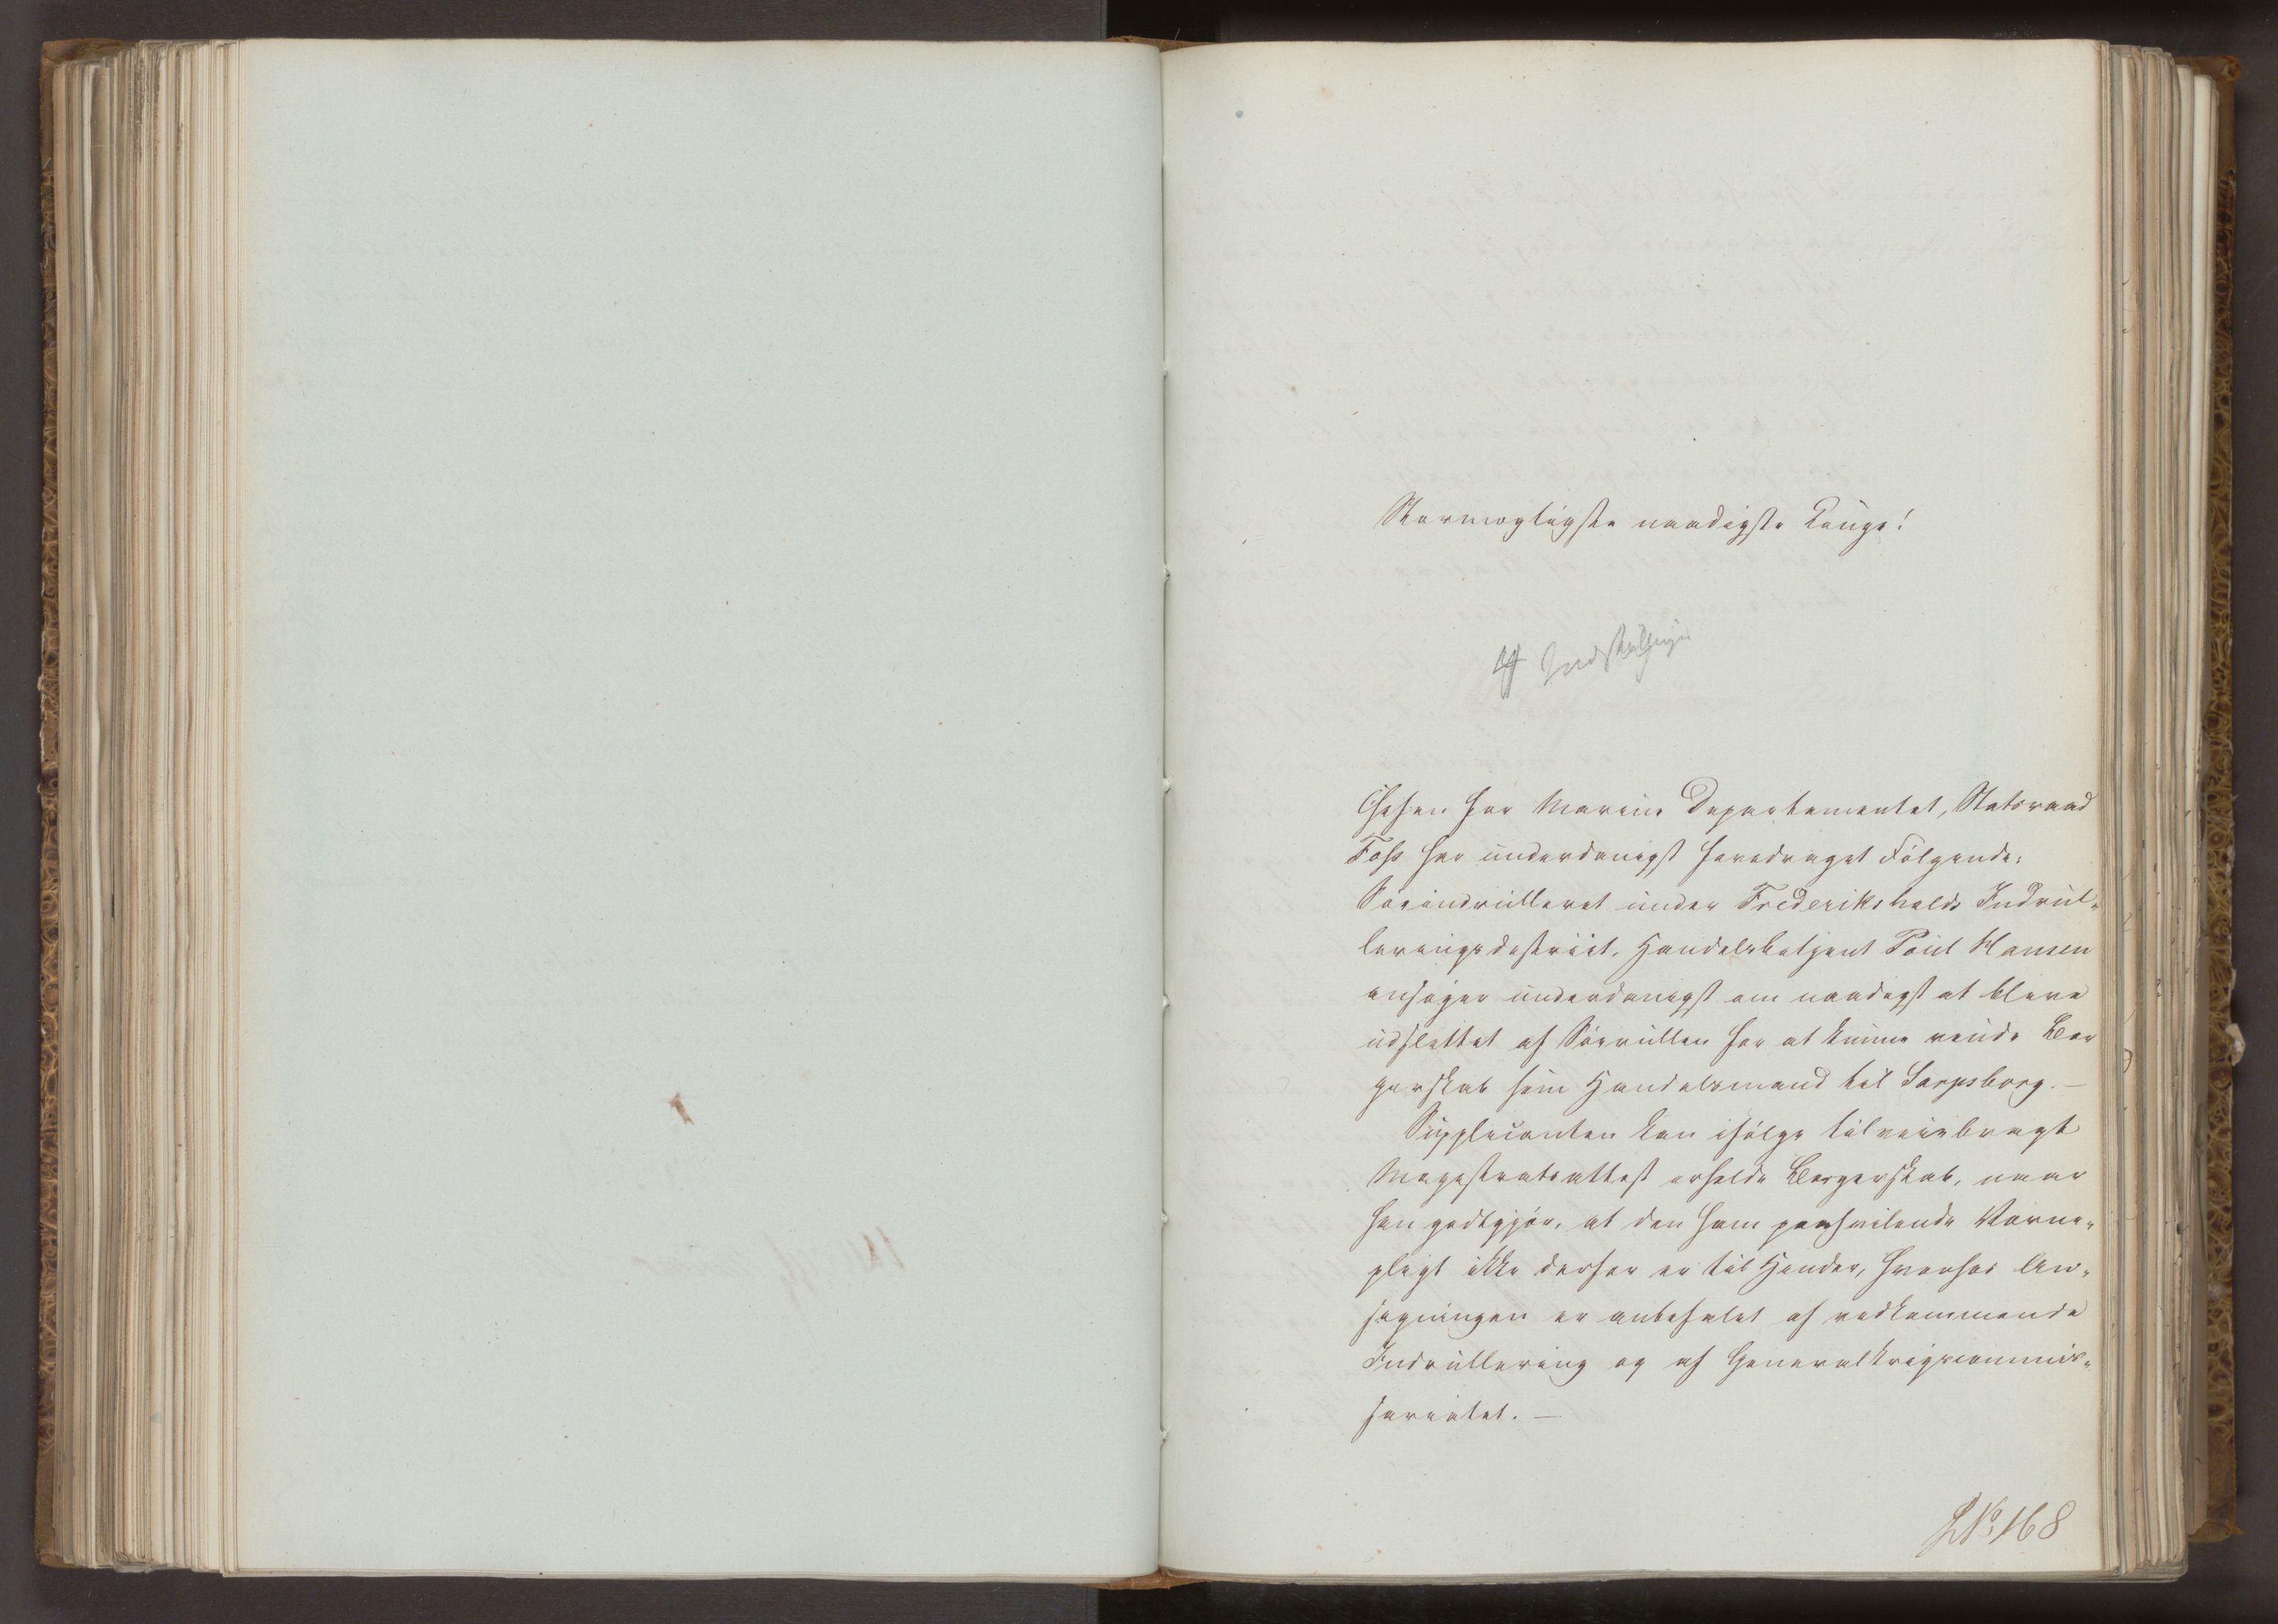 Stormægtigste naadigste Konge!
Indstillinger
Chefen for Marine Departementet, Statsraad
Foss har underdanigst foredraget Følgende:
Søeindrulleret under Frederikshalds Indrul-
leringsdistrict, Handelsbetjent Poul Hansen
ansøger underdanigst om naadigst at blive
udslettet af Søerullen for at kunne vinde Bor
gerskab som Handelsmand til Sarpsborg. —
Supplicanten kan ifølge tilveiebragt
Magistratsattest erholde Borgerskab, naar
han godtgjør, at den ham paahvilende Værne-
pligt ikke derfor er til Hinder, hvorhos An-
søgningen er anbefalet af vedkommende
Indrullering og af Generalkrigscommis-
sariatet. —
No 168